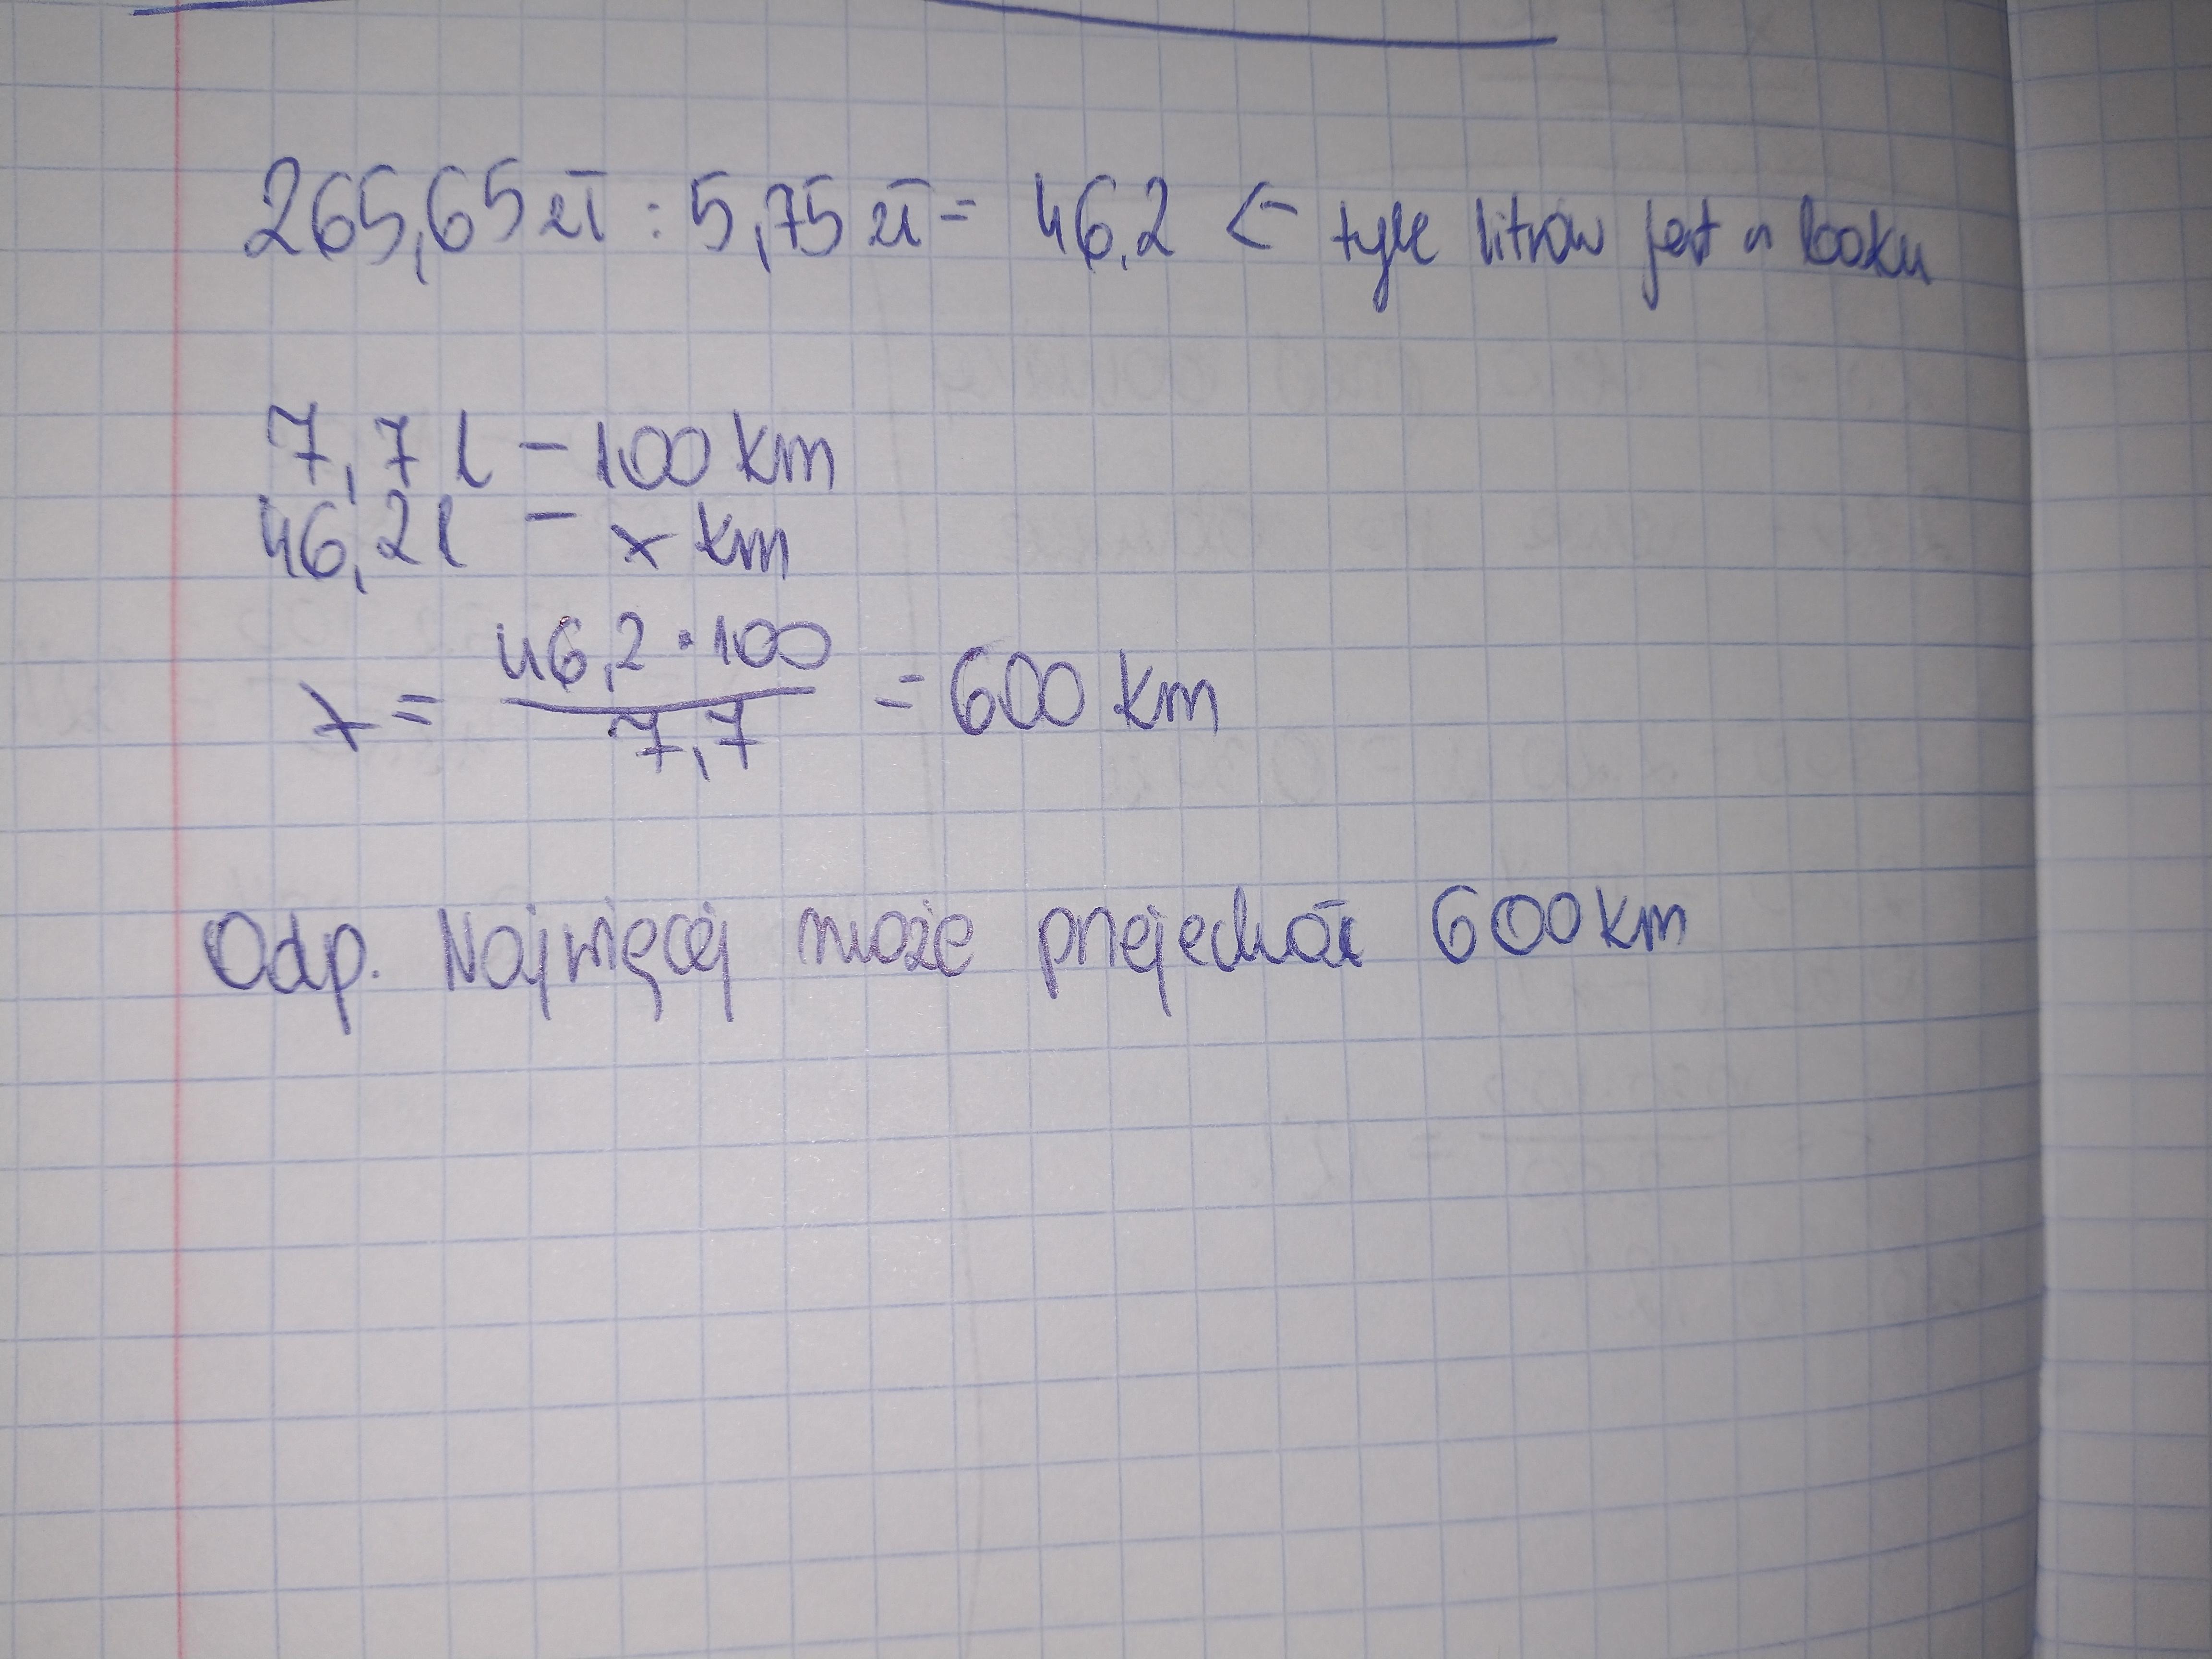 265,65 zł : 5,75 zł = 46,2 ← tyle litrów jest w baku
7,7 l - 100 km
46,2 l - x km
x = 46,2 · 100 / 7,7 = 600 km
Odp. Najwięcej może przejechać 600 km